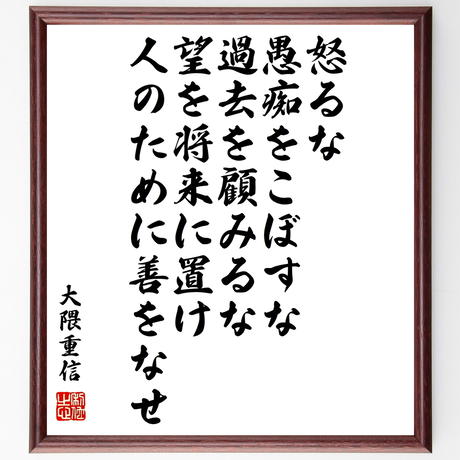 怒るな
愚痴をこぼすな
過去を顧みるな
望を将来に置け
人のために善をなせ
大隈重信